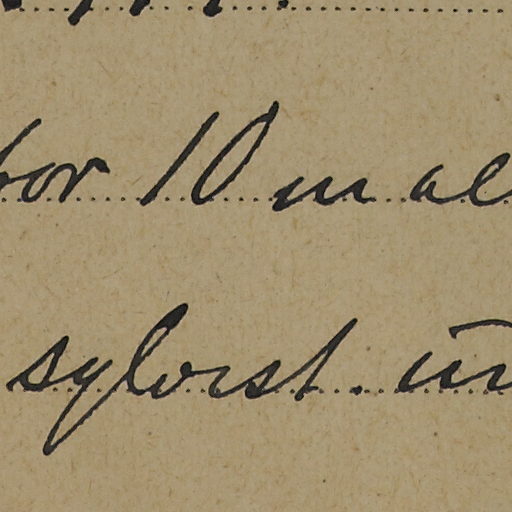 bor 10 m al
sylvist. in